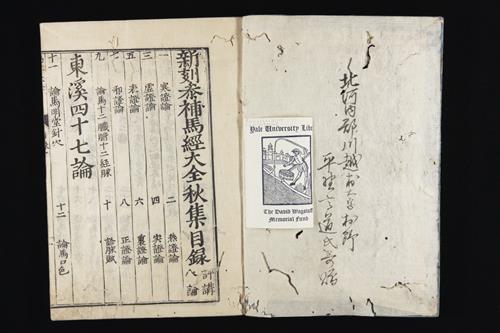 北河内郡川越
平
Yale University Libr
The David Wagstaff
Memorial Fund
新刻參補馬經大全秋集目録
評講
八論
一 寒證論
二 熱證論
三 虚證論
四 実證論
五 表證論
六 裏證論
七 和證論
八 正證論
九 論馬十二臟腑十二経脉
十 論脉賦
東溪四十七論
十一 論馬明堂針穴
十二 論馬口色